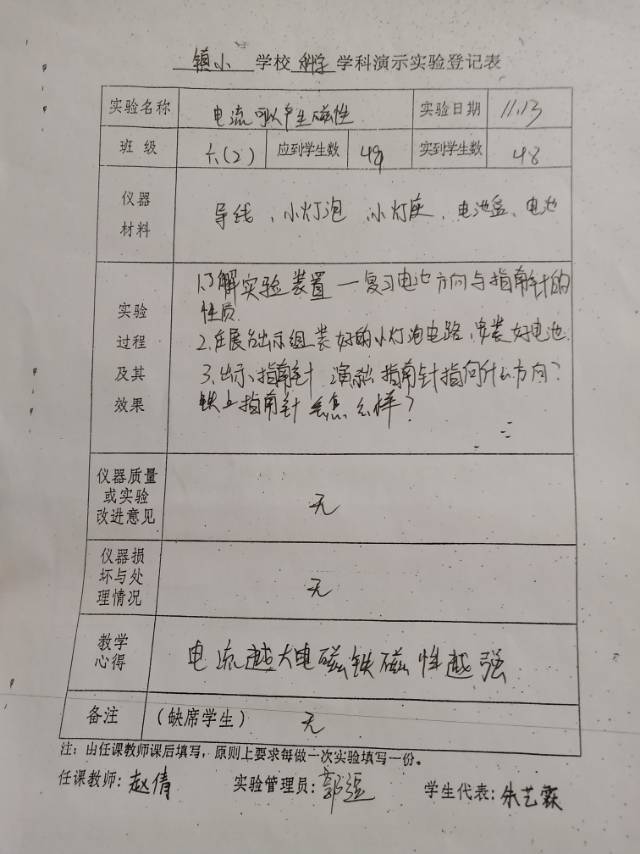 镇小 学校 科学 学科演示实验登记表
实验名称 电流可以产生磁性 实验日期 11.13
班 级 六(2) 应到学生数 48 实到学生数 48
仪器
材料
导线、小灯泡 小灯座、电池盒、电池
实验
过程
及其
效果
1.了解实验装置一复习电池方向与指南针的
性质.
2.在展台出示组装好的小灯泡电路,安装好电池.
3.出示指南针 指南针指向什么方向?
指南针会怎么样?
仪器质量
或实验
改进意见
无
仪器损
坏与处
理情况
无
教学
心得
电流越大电磁铁磁性越强
备注 (缺席学生) 无
注:由任课教师课后填写,原则上要求每做一次实验填写一份。
任课教师:赵倩 实验管理员:郭 学生代表:朱艺霖